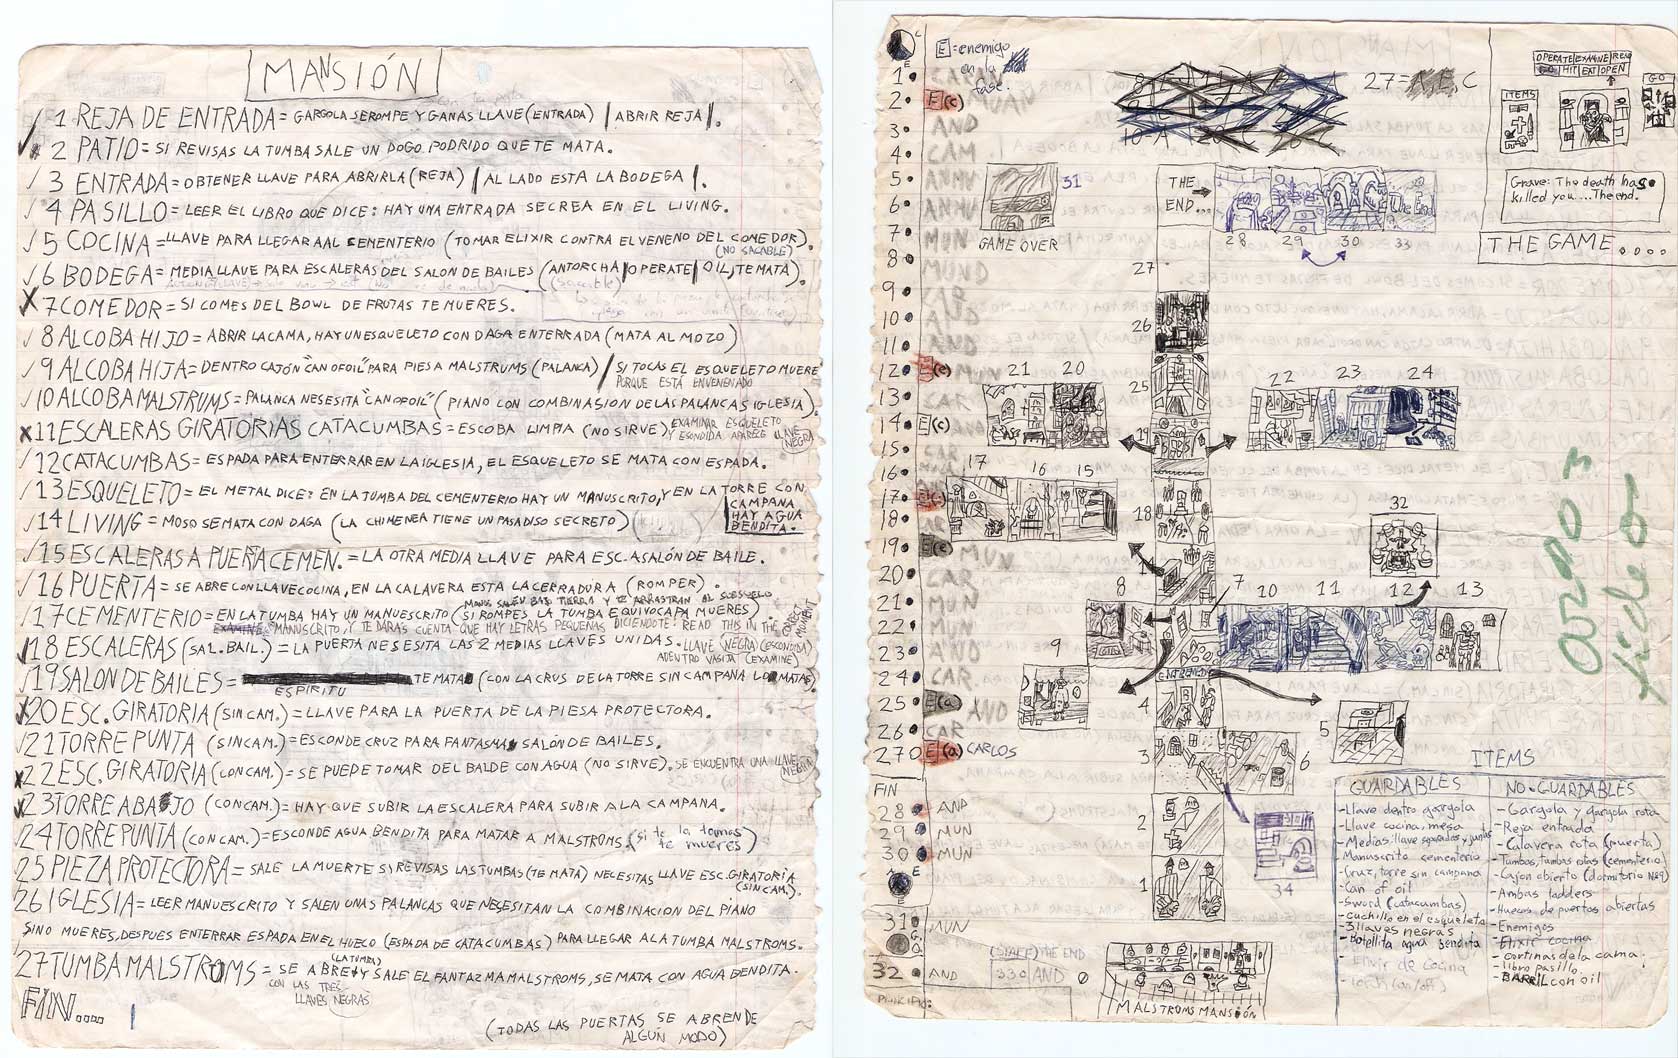 MANSIÓN
1 REJA DE ENTRADA = GARGOLA SE ROMPE Y GANAS LLAVE (ENTRADA) / ABRIR REJA /.
2 PATIO = SI REVISAS LA TUMBA SALE UN DOGO PODRIDO QUE TE MATA.
3 ENTRADA = OBTENER LLAVE PARA ABRIRLA (REJA) / AL LADO ESTA LA BODEGA /.
4 PASILLO = LEER EL LIBRO QUE DICE: HAY UNA ENTRADA SECREA EN EL LIVING.
5 COCINA = LLAVE PARA LLEGAR AAL CEMENTERIO (TOMAR ELIXIR CONTRA EL VENENO DEL COMEDOR).
(NO SACABLE)
6 BODEGA = MEDIA LLAVE PARA ESCALERAS DEL SALON DE BAILES (ANTORCHA / OPERATE / OIL, TE MATA).
7 COMEDOR = SI COMES DEL BOWL DE FRUTAS TE MUERES.
8 ALCOBA HIJO = ABRIR LA CAMA, HAY UN ESQUELETO CON DAGA ENTERRADA (MATA AL MOZO)
9 ALCOBA HIJA = DENTRO CAJÓN "CAN OF OIL" PARA PIESA MALSTRUMS (PALANCA) / SI TOCAS EL ESQUELETO MUERE
PORQUE ESTÁ ENVENENADO
10 ALCOBA MALSTRUMS = PALANCA NESESITA "CAN OF OIL" (PIANO CON COMBINASION DE LAS PALANCAS IGLESIA).
11 ESCALERAS GIRATORIAS CATACUMBAS = ESCOBA LIMPIA (NO SIRVE), EXAMINAR ESQUELETO
Y ESCONDIDA APARECE LLAVE NEGRA
12 CATACUMBAS = ESPADA PARA ENTERRAR EN LA IGLESIA, EL ESQUELETO SE MATA CON ESPADA.
13 ESQUELETO = EL METAL DICE: EN LA TUMBA DEL CEMENTERIO HAY UN MANUSCRITO, Y EN LA TORRE CON
CAMPANA
HAY AGUA
BENDITA.
14 LIVING = MOSO SE MATA CON DAGA (LA CHIMENEA TIENE UN PASADISO SECRETO)
15 ESCALERAS A PUERTA CEMEN. = LA OTRA MEDIA LLAVE PARA ESC. A SALÓN DE BAILE.
16 PUERTA = SE ABRE CON LLAVE COCINA, EN LA CALAVERA ESTA LA CERRADURA (ROMPER).
MANOS SALEN BAJO TIERRA Y TE ARRASTRAN AL SUBSUELO
17 CEMENTERIO = EN LA TUMBA HAY UN MANUESCRITO (SI ROMPES LA TUMBA EQUIVOCADA MUERES)
EXAMINE MANUSCRITO, Y TE DARAS CUENTA QUE HAY LETRAS PEQUEÑAS DICIENDOTE: READ THIS IN THE CORRECT MOMENT
18 ESCALERAS (SAL. BAIL.) = LA PUERTA NESESITA LAS 2 MEDIAS LLAVES UNIDAS. LLAVE NEGRA (ESCONDIDA)
ADENTRO VASIJA (EXAMINE)
19 SALON DE BAILES = TE MATA (CON LA CRUS DE LA TORRE SIN CAMPANA LO MATAS).
ESPIRITU
20 ESC. GIRATORIA (SIN CAM.) = LLAVE PARA LA PUERTA DE LA PIESA PROTECTORA.
21 TORRE PUNTA (SIN CAM.) = ESCONDE CRUZ PARA FANTASMA SALÓN DE BAILES.
22 ESC. GIRATORIA (CON CAM.) = SE PUEDE TOMAR DEL BALDE CON AGUA (NO SIRVE). SE ENCUENTRA UNA LLAVE NEGRA
23 TORRE ABAJO (CON CAM.) = HAY QUE SUBIR LA ESCALERA PARA SUBIR A LA CAMPANA.
24 TORRE PUNTA (CON CAM.) = ESCONDE AGUA BENDITA PARA MATAR A MALSTROMS (si te la tomas
te mueres)
25 PIEZA PROTECTORA = SALE LA MUERTE SI REVISAS LAS TUMBAS (TE MATA) NECESITAS LLAVE ESC. GIRATORIA
(SIN CAM.).
26 IGLESIA = LEER MANUESCRITO Y SALEN UNAS PALANCAS QUE NECESITAN LA COMBINACION DEL PIANO
SINO MUERES, DESPUES ENTERRAR ESPADA EN EL HUECO (ESPADA DE CATACUMBAS) PARA LLEGAR A LA TUMBA MALSTROMS.
(LA TUMBA)
27 TUMBA MALSTROMS = SE ABRE Y SALE EL FANTAZMA MALSTROMS, SE MATA CON AGUA BENDITA.
CON LAS TRES
LLAVES NEGRAS
FIN....
(TODAS LAS PUERTAS SE ABREN DE
ALGÚN MODO)
E = enemigo
en la
fase.
27 = , C
OPERATE EXAMINE READ
GO HIT EAT OPEN
GO
ITEMS
Grave: The death has
killed you ... The end.
THE GAME . . . .
1
2 E (c)
3 AND
4 CAM
5
6
7 MUN
8 MUND
9
10
11
12 E (c)
13 CAR
14 E (c)
15 CAR
16
17 E
18
19 E (c) MUN
20 CAR
21 MUN
22 MUN
23 AND
24 CAR
25 E (a) AND
26 CAR
27 E (a) CARLOS
FIN
28 AND
29 MUN
30 MUN
31 MUN
32 AND
(SPACE) THE END
33 AND
31
GAME OVER
THE
END...
The End
28 29 30 33
27
26
25
21 20
22 23 24
19
17 16 15
18
32
8 7 10 11 12 13
9
4
5
3
6
2
1
34
ENTRADA
Oro 3
fideos
MALSTROMS MANSIÓN
ITEMS
GUARDABLES
- Llave dentro gargola
- Llave cocina, mesa
- Medias llave separadas y juntas
- Manuscrito cementerio
- Cruz, torre sin campana
- Can of oil
- Sword (catacumbas)
- cuchillo en el esqueleto
- 3 llaves negras
- Botellita agua bendita
- Elixir de Cocina
- torch (on/off)
NO-GUARDABLES
- Gargola y gargola rota
- Reja entrada
- Calavera rota (muerta)
- Tumbas, tumbas rotas (cementerio)
- Cajon abierto (dormitorio Nº9)
- Ambas ladders
- Huecos de puertas abiertas
- Enemigos
- Elixir cocina
- cortinas de la cama.
- libro pasillo.
- BARRIL con oil